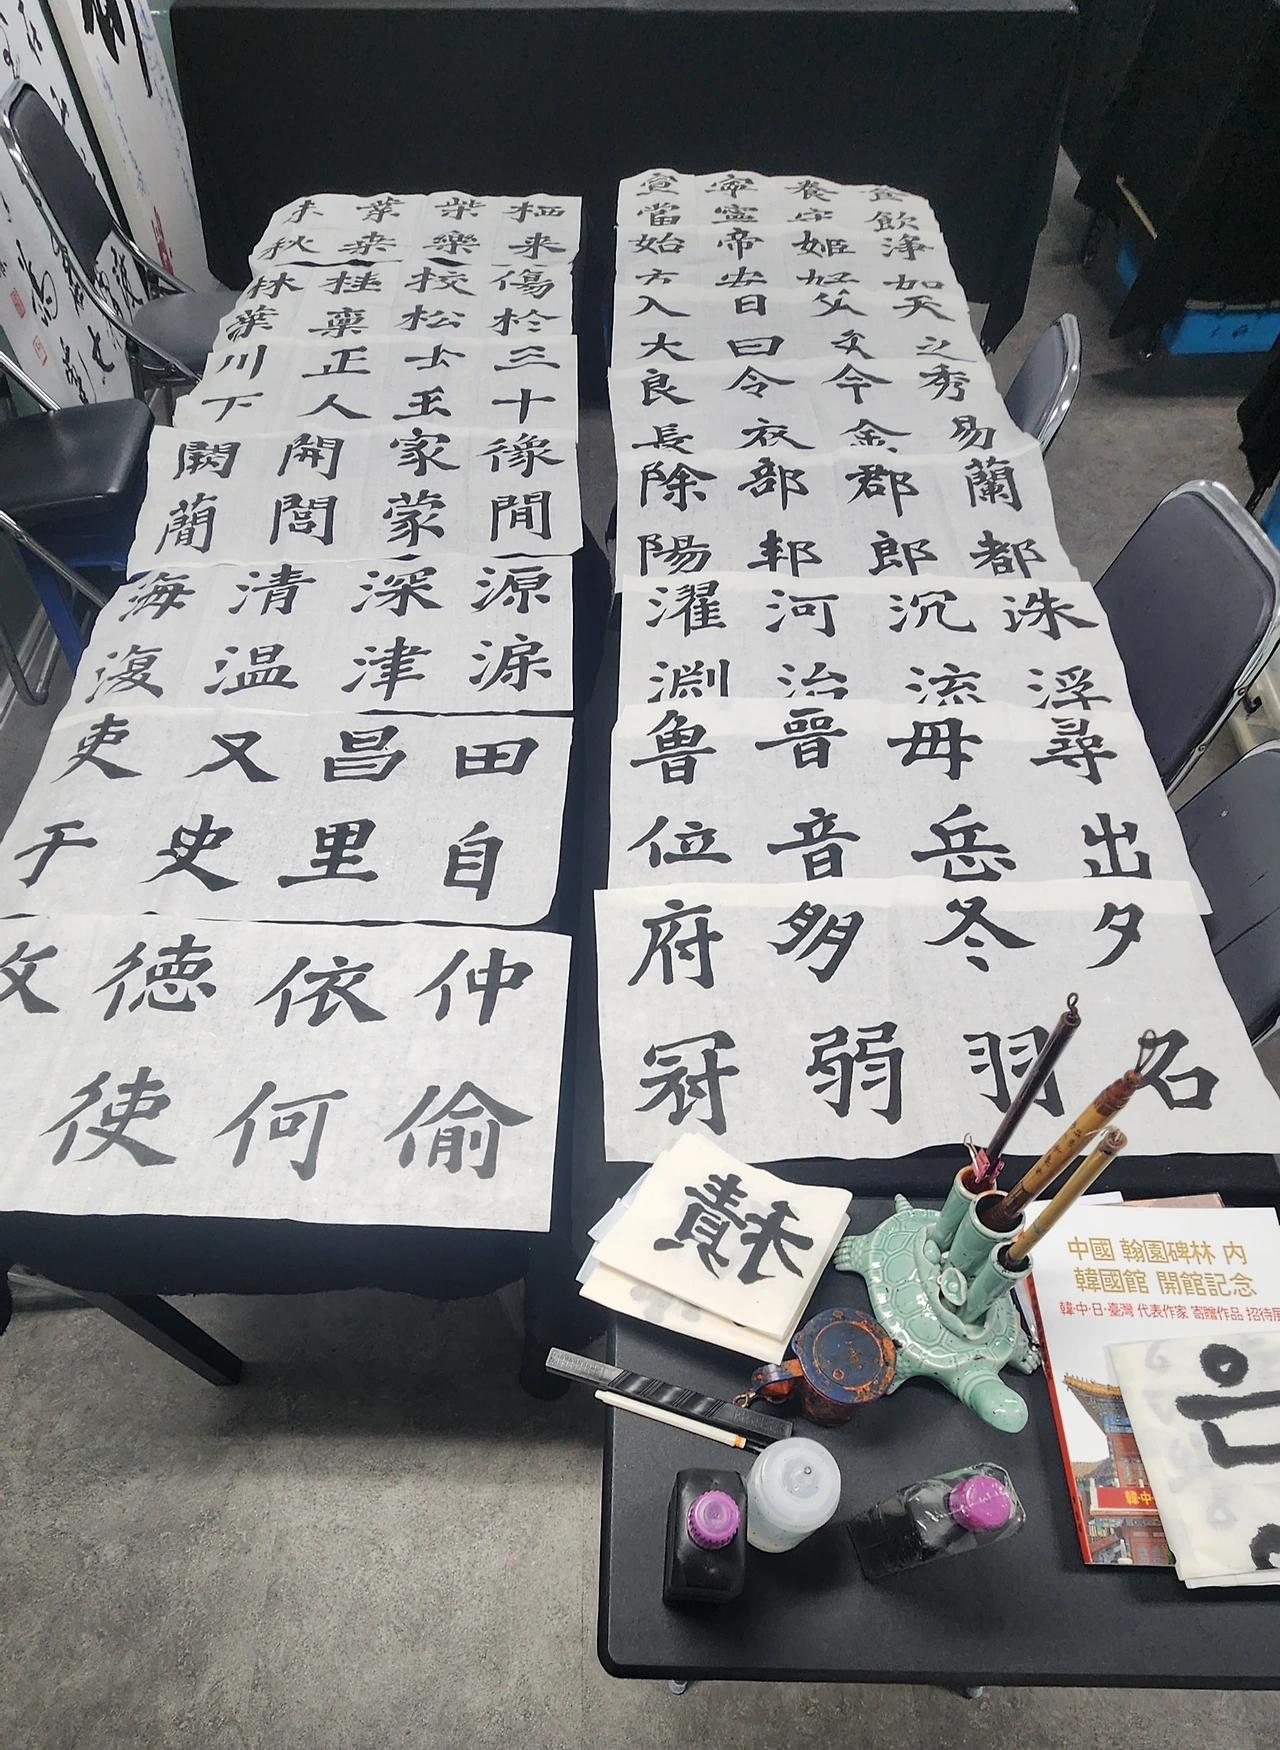 柴 栖
秋 桒 樂 来
林 桂 校 傷
葉 稟 松 於
川 正 士 三
下 人 王 十
闕 開 家 像
蕑 閭 蒙 間
海 清 深 源
復 温 津 涙
吏 又 昌 田
于 史 里 自
攻 德 依 仲
使 何 偷
宣 寧 養 食
當 寍 字 飲
始 帝 姬 淨
方 安 好 如
入 日 父 天
大 曰 文 之
良 令 今 秀
長 衣 金 易
除 部 郡 蘭
陽 邦 郎 都
濯 河 沉 洙
淵 治 流 浮
魯 晉 毋 尋
位 音 岳 出
府 多 冬 夕
冠 弱 羽 名
中國 翰園碑林 內
韓國館 開館記念
韓·中·日·臺灣 代表作家 寄贈作品 招待展
韓·中
은